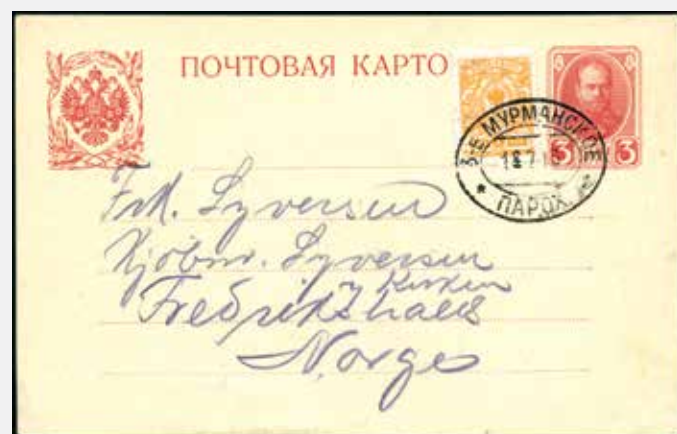 ПОЧТОВАЯ КАРТО
3-Е МУРМАНСКОЕ
ПАРОХ.
3 3
Frk. Syversen
Kjøbm. Syversen
Fredrikshald
Norge